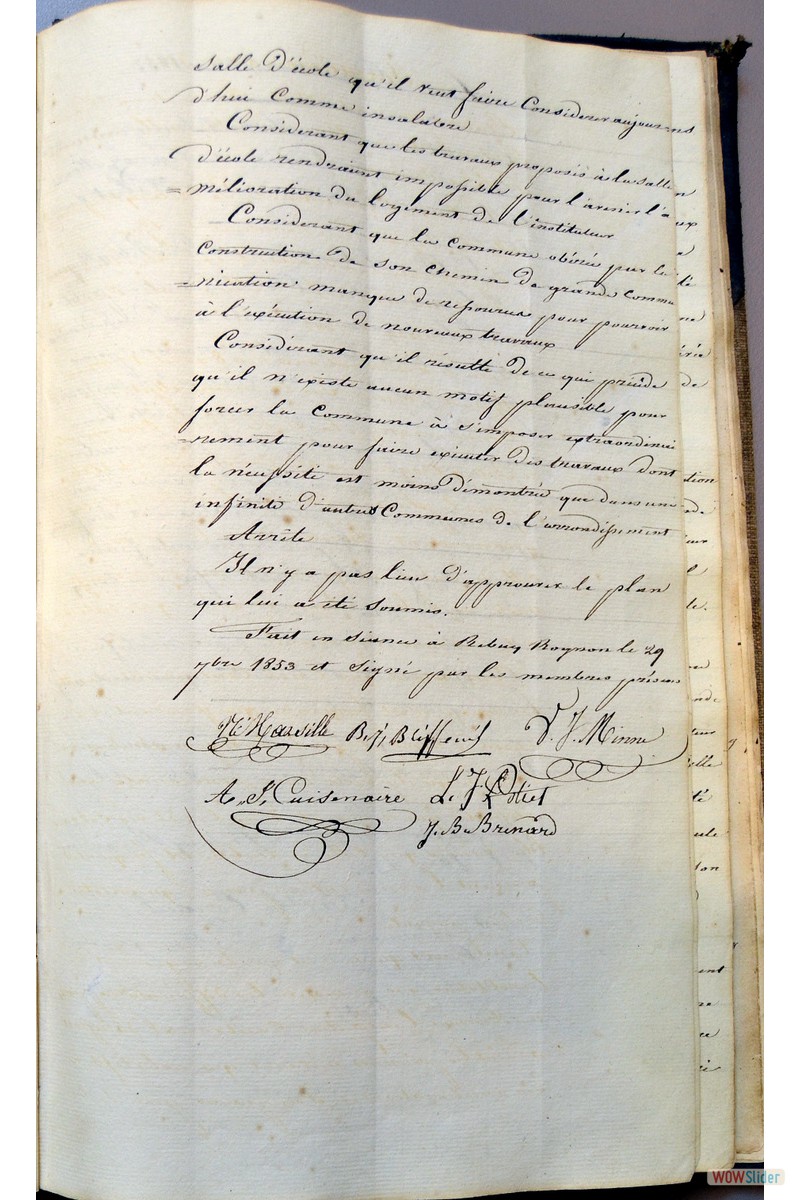 salle d'école qu'il veut faire considerer aujour=
d'hui comme insalubre
Considerant que les travaux proposés à la salle
d'école rendraient impossible pour l'avenir l'a
=mélioration du logement de l'instituteur
Considerant que la Commune obérée par la
construction de son chemin de grande commu
=nication manque de ressources pour pourvoir
à l'exécution de nouveaux travaux
Considérant qu'il résulte de ce qui précède
qu'il n'existe aucun motif plausible pour
forcer la Commune à s'imposer extraordinai
=rement pour faire exécuter des travaux dont
la nécessité est moins démontrée que dans une
infinité d'autres Communes de l'arrondissement
Arrête
Il n'y a pas lieu d'approuver le plan
qui lui a été soumis.
Fait en séance à Rebecq Rognon le 29
7bre 1853 et signé par les membres présens
B. J.
D. J. Minne
A. J. Cuisenaire L. J.
J. B. Brenard
WOWSlider